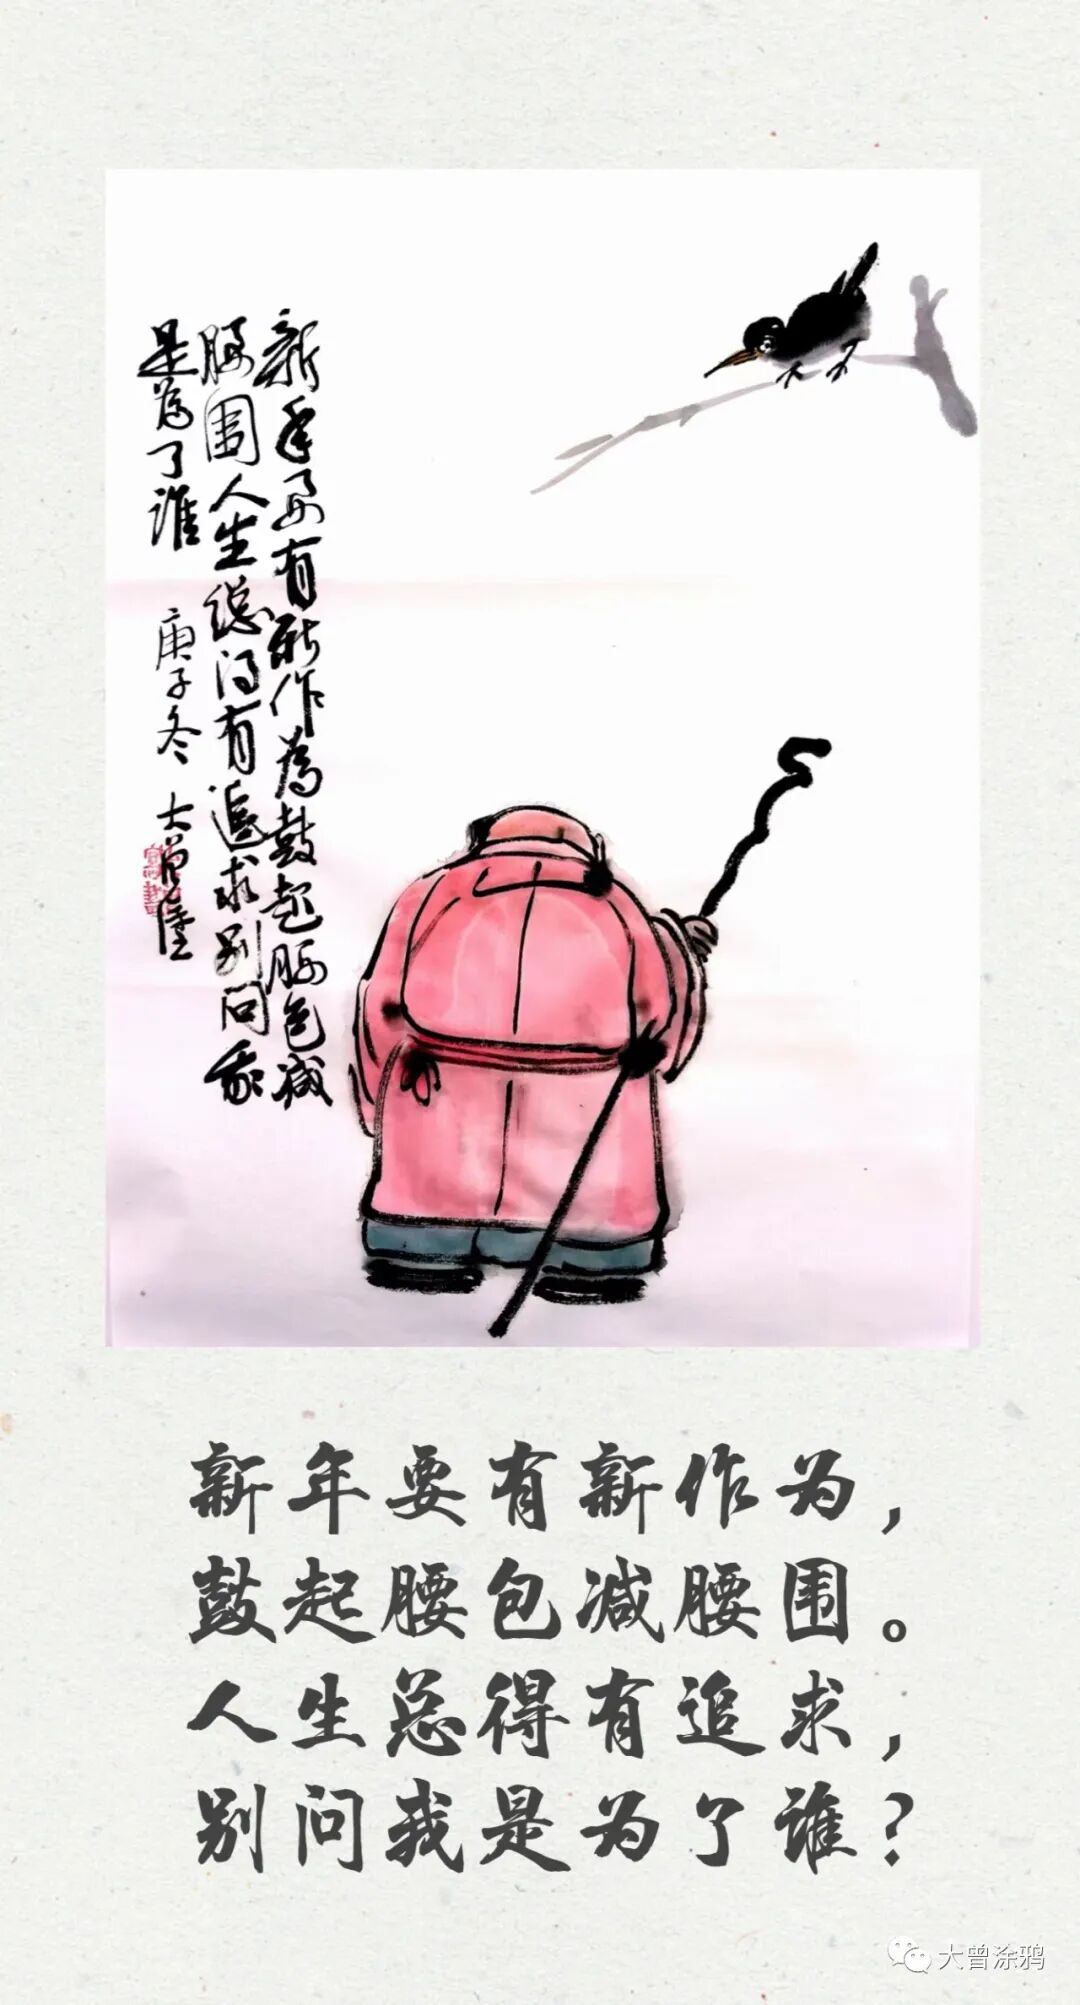 新年要有新作為鼓起腰包减
腰围人生總得有追求别问我
是為了谁
庚子冬 大曾
新年要有新作为，
鼓起腰包减腰围。
人生总得有追求，
别问我是为了谁？
大曾涂鸦